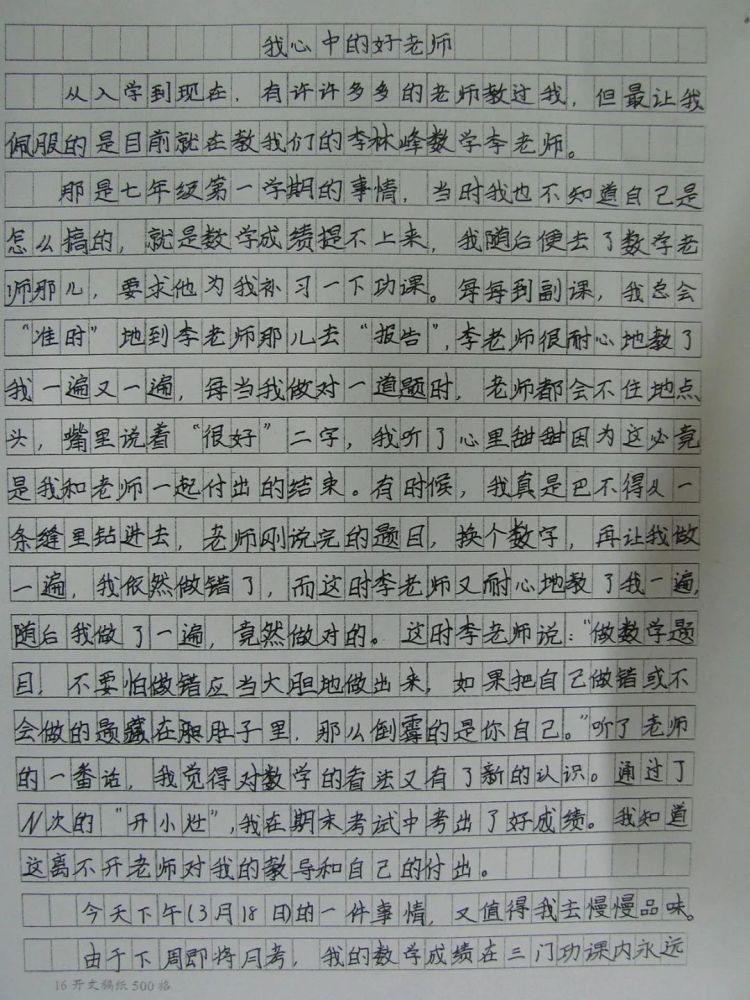 我心中的好老师
从入学到现在，有许许多多的老师教过我，但最让我
佩服的是目前就在教我们的李林峰数学李老师。
那是七年级第一学期的事情，当时我也不知道自己是
怎么搞的，就是数学成绩提不上来，我随后便去了数学老
师那儿，要求他为我补习一下功课。每每到副课，我总会
“准时”地到李老师那儿去“报告”，李老师很耐心地教了
我一遍又一遍，每当我做对一道题时，老师都会不住地点
头，嘴里说着“很好”二字，我听了心里甜甜因为这必竟
是我和老师一起付出的结束。有时候，我真是巴不得从一
条缝里钻进去，老师刚说完的题目，换个数字，再让我做
一遍，我依然做错了，而这时李老师又耐心地教了我一遍，
随后我做了一遍，竟然做对的。这时李老师说：“做数学题
目，不要怕做错应当大胆地做出来，如果把自己做错或不
会做的题藏在肚子里，那么倒霉的是你自己。”听了老师
的一番话，我觉得对数学的看法又有了新的认识。通过了
N次的“开小灶”，我在期末考试中考出了好成绩。我知道
这离不开老师对我的教导和自己的付出。
今天下午(3月18日)的一件事情，又值得我去慢慢品味。
由于下周即将月考，我的数学成绩在三门功课内永远
16开文稿纸500格